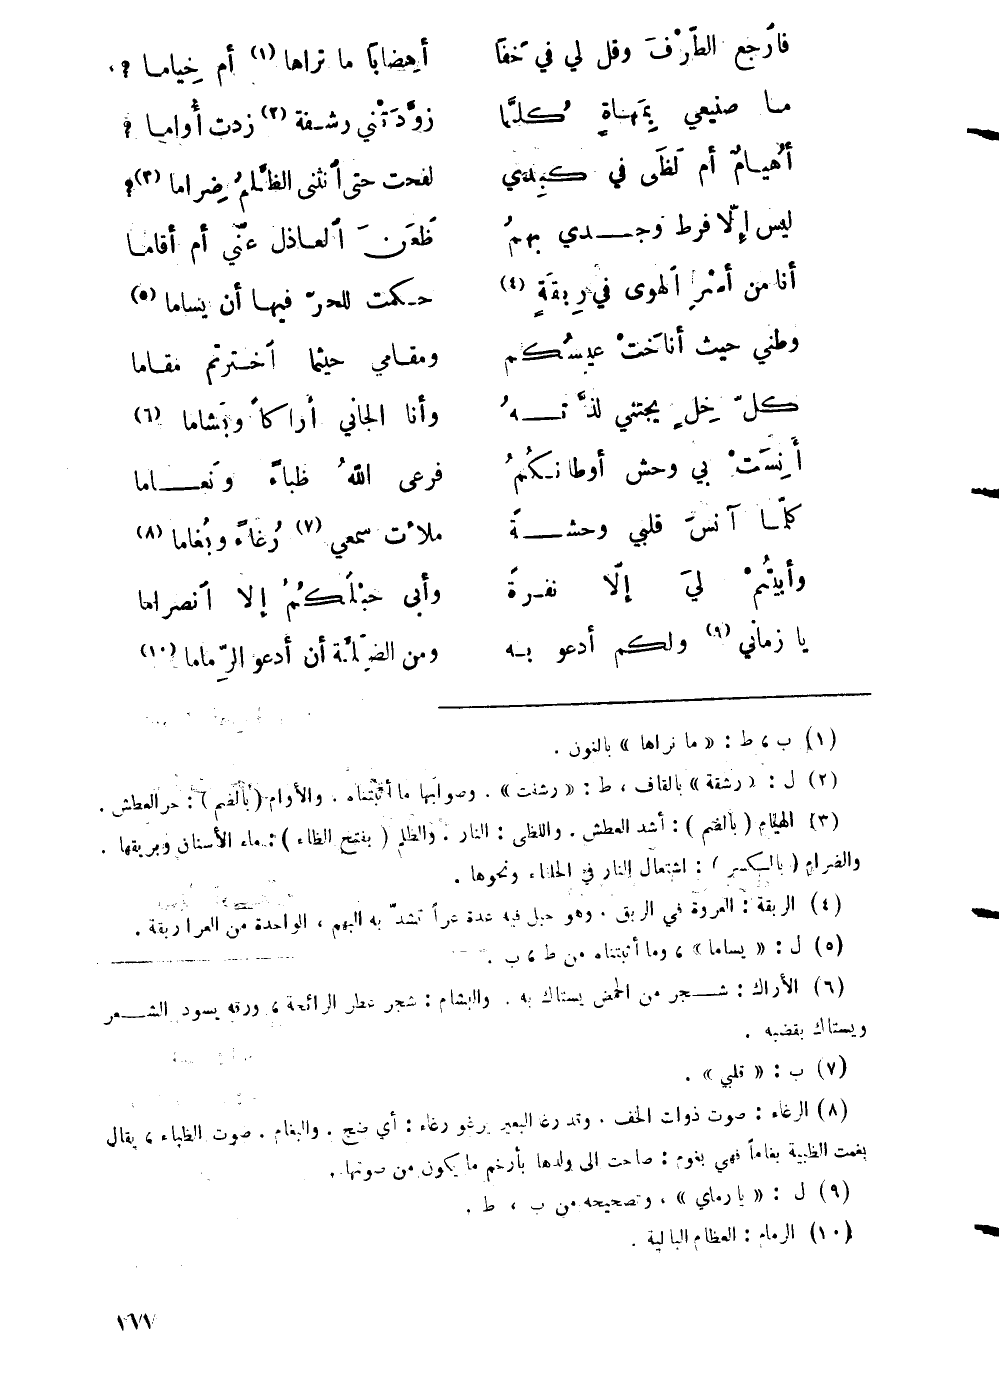 فارجع الطَّرْفَ وقل لي في خفا أهضابًا ما تراها (١) أم خياما ؟
ما صنيعي بِمَهاةٍ كلَّما زوَّدَتْني رشفة (٢) زدت أُواما ؟
أهُيامٌ أم لَظَى في كبِدي لفحت حتى ٱنثنى الظَّلْمُ ضِراما (٣) ؟
ليس إلّا فرط وجدي بهمُ ظعَنَ ٱلعاذل عنّي أم أقاما
أنا من أسْرِ ٱلهوى في رِبقَةٍ (٤) حكمت للحرّ فيها أن يساما (٥)
وطني حيث أناخَتْ عيسُكم ومقامي حيثما ٱخترتم مقاما
كلّ خِلٍ يجتني لذَّتهُ وأنا الجاني أراكاً وبَشاما (٦)
أَنِسَتْ بي وحش أوطانكُمُ فرعى اللهُ ظباءً ونَعاما
كلّما آنسَ قلبي وحشةً ملأت سمعي (٧) رُغاءً وبُغاما (٨)
وأبيتُمْ ليَ إلّا نفرةً وأبى حبْلُكُمُ إلا ٱنصراما
يا زماني (٩) ولكم أدعو به ومن الضِلَّة أن أدعو الرِّماما (١٠)
(١) ب ، ط : « ما نراها » بالنون .
(٢) ل : « رشقة » بالقاف ، ط : « رشفت » . وصوابها ما أثبتناه . والأوام ( بالضم ) : حر العطش .
(٣) الهيام ( بالضم ) : أشد العطش . واللظى : النار . والظلم ( بفتح الظاء ) : ماء الأسنان وبريقها .
والضرام ( بالكسر ) : اشتعال النار في الحلفاء ونحوها .
(٤) الربقة : العروة في الربق . وهو حبل فيه عدة عراً تشدّ به البهم ، الواحدة من العرا ربقة .
(٥) ل : « يساما » ، وما أثبتناه من ط ، ب .
(٦) الأراك : شجر من الحمض يستاك به . والبشام : شجر عطر الرائحة ، ورقه يسود الشعر
ويستاك بقضبه .
(٧) ب : « قلبي » .
(٨) الرغاء : صوت ذوات الخف . وقد رغا البعير يرغو رغاء : أي ضج . والبغام . صوت الظباء ، يقال
بغمت الظبية بغاماً فهي بغوم : صاحت الى ولدها بأرخم ما يكون من صوتها .
(٩) ل : « يا رماي » ، وتصحيحه من ب ، ط .
(١٠) الرمام : العظام البالية .
١٦٧